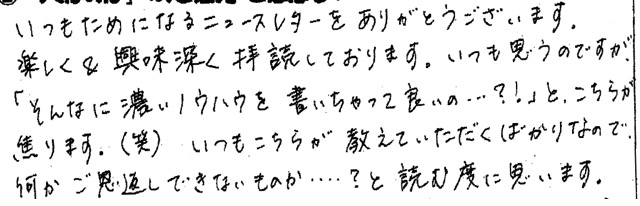 いつもためになるニュースレターをありがとうございます。
楽しく＆興味深く拝読しております。いつも思うのですが、
「そんなに濃いノウハウを書いちゃって良いの…?!」と、こちらが
焦ります。(笑) いつもこちらが教えていただくばかりなので、
何かご恩返しできないものか‥‥?と読む度に思います。